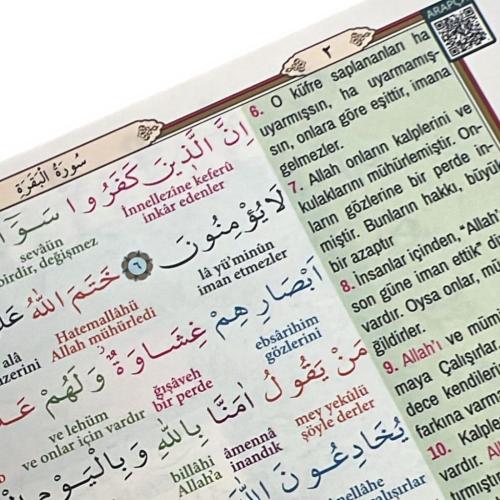 ARAPÇA
٢
سُورَةُ الْبَقَرَةِ
اِنَّ الَّذٖينَ كَفَرُوا سَوَٓا
İnnellezîne keferû
inkâr edenler
sevâün
birdir, değişmez
لَا يُؤْمِنُونَ ٦ خَتَمَ اللّٰهُ
lâ yü'minûn
iman etmezler
Hatemallâhü
Allah mühürledi
alâ
üzerini
اَبْصَارِهِمْ غِشَاوَةٌ وَلَهُمْ
ebsârihim
gözlerini
ğışâveh
bir perde
ve lehüm
ve onlar için vardır
مَنْ يَقُولُ اٰمَنَّا بِاللّٰهِ وَبِالْيَوْمِ
mey yekülü
şöyle derler
âmennâ
inandık
billâhi
Allah'a
يُخَادِعُونَ اللّٰهَ
6. O küfre saplananları ha
uyarmışsın, ha uyarmamış-
sın, onlara göre eşittir, imana
gelmezler.
7. Allah onların kalplerini ve
kulaklarını mühürlemiştir. On-
ların gözlerine bir perde in-
miştir. Bunların hakkı, büyü
bir azaptır
8. İnsanlar içinden, "Allah'
son güne iman ettik" di
vardır. Oysa onlar, mü
ğildirler.
9. Allah'ı ve mümi
maya Çalışırlar.
dece kendilerin
farkına varma
10. Kalple
vardır. Al